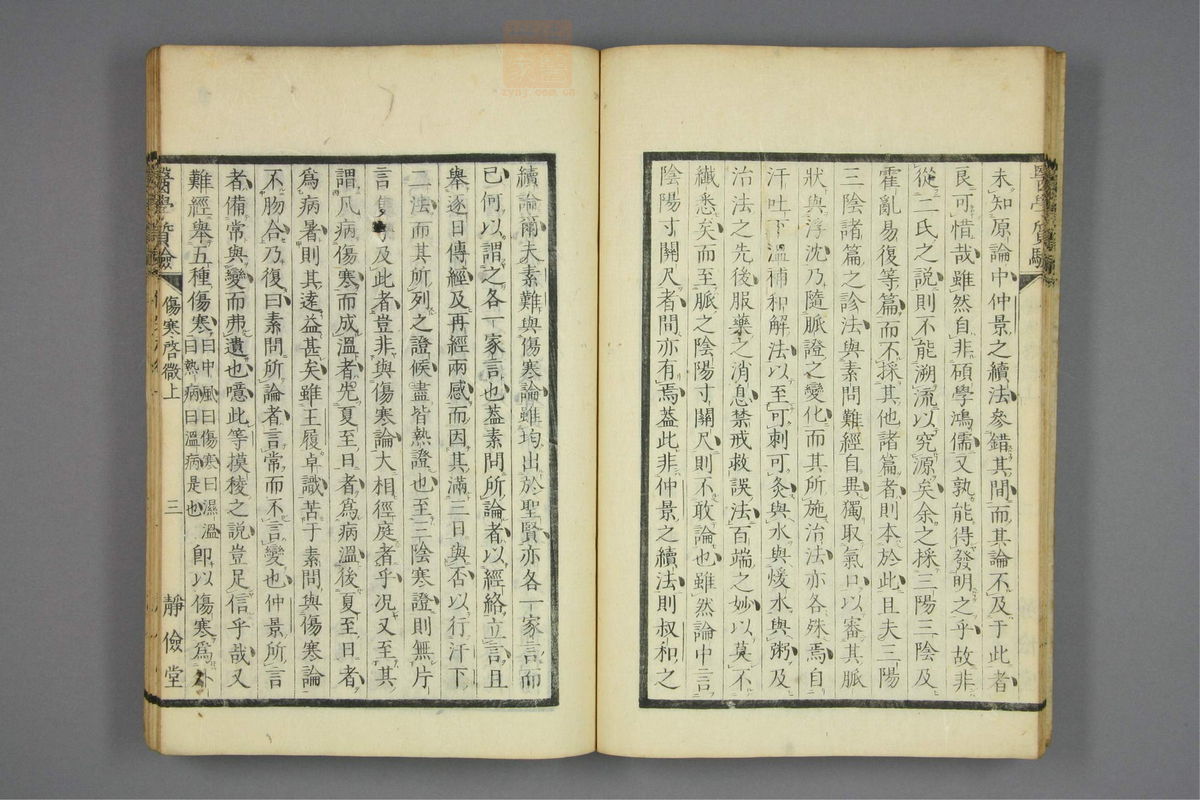 未知原論中仲景之續法參錯其間而其論不及于此者
良可惜哉雖然自非碩學鴻儒又孰能得發明之乎故非
從二氏之説則不能溯流以究源矣余之採三陽三陰及
霍亂易復等篇而不採其他諸篇者則本於此且夫三陽
三陰諸篇之診法與素問難經自異獨取氣口以審其脈
狀與浮沈乃隨脈證之變化而其所施治法亦各殊焉自
汗吐下溫補和解法以至可刺可灸與水與煖水與粥及
治法之先後服藥之消息禁戒救誤法百端之妙以莫不
纖悉矣而至脈之陰陽寸關尺則不敢論也雖然論中言
陰陽寸關尺者間亦有焉蓋此非仲景之續法則叔和之
續論爾夫素難與傷寒論雖均出於聖賢亦各一家言而
已何以謂之各一家言也蓋素問所論者以經絡立言且
舉逐日傳經及再經兩感而因其滿三日與否以行汗下
二法而其所列之證候盡皆熱證也至三陰寒證則無片
言及此者豈非與傷寒論大相徑庭者乎況又至其
謂凡病傷寒而成溫者先夏至日者為病溫後夏至日者
為病暑則其逹益甚矣雖王履卓識苦于素問與傷寒論
不肳合乃復曰素問所論者言常而不言變也仲景所言
者備常與變而弗遺也噫此等模稜之説豈足信乎哉又
難經舉五種傷寒曰中風曰傷寒曰濕溫曰熱病曰溫病是也即以傷寒為
醫學質驗 傷寒啓微上 三 靜儉堂
zynj.com.cn